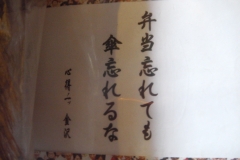 弁当忘れても
傘忘れるな
金沢